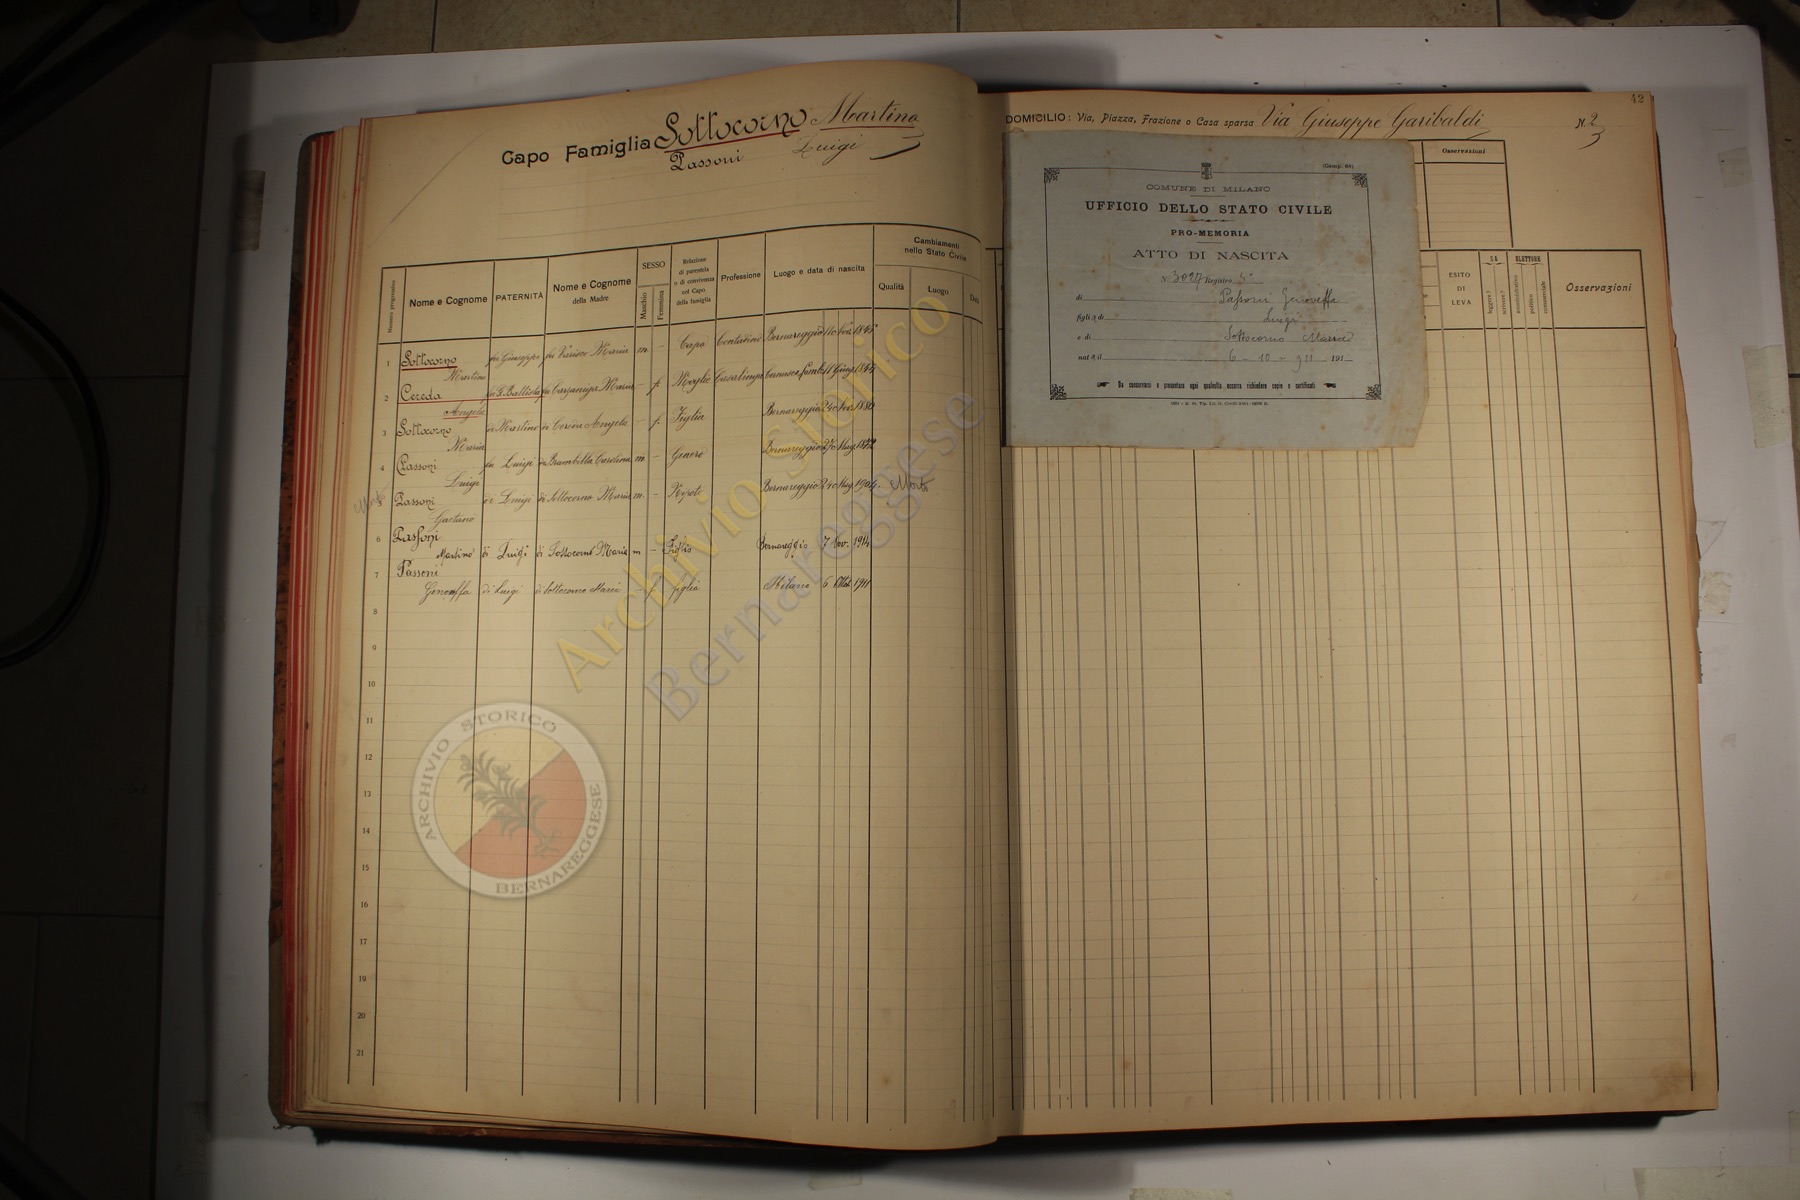 Capo Famiglia Sottocorno Martino
Passoni Luigi
Numero progressivo
Nome e Cognome
PATERNITÀ
Nome e Cognome
della Madre
SESSO
Maschio
Femmina
Relazione
di parentela
o di convivenza
col Capo
della famiglia
Professione
Luogo e data di nascita
Cambiamenti
nello Stato Civile
Qualità
Luogo
Data
1 Sottocorno Martino fu Giuseppe fu Maria m - Capo Contadino Bernareggio 11 Nov. 1845
2 Cereda Angela fu G. Battista fu Maria - f. Moglie Casalinga 11 Giug. 1844
3 Sottocorno Maria di Martino di Cereda Angela - f. Figlia Bernareggio 24 Nov. 1880
4 Passoni Luigi fu Luigi di Brambilla Carolina m. - Genero Bernareggio 27 Mag. 1872
5 Passoni Gaetano di Luigi di Sottocorno Maria m. - Nipote Bernareggio 24 Mag. 1904. Morto
6 Passoni Martino di Luigi di Sottocorno Maria m - Figlio Bernareggio 7 Nov. 1914
7 Passoni Genoveffa di Luigi di Sottocorno Maria - f figlia Milano 6 Ott. 1911
8
9
10
11
12
13
14
15
16
17
18
19
20
21
ARCHIVIO STORICO
BERNAREGGESE
Archivio Storico
Bernareggese
42
DOMICILIO: Via, Piazza, Frazione o Casa sparsa Via Giuseppe Garibaldi N. 2
3
Osservazioni
(Comp. 64)
COMUNE DI MILANO
UFFICIO DELLO STATO CIVILE
PRO-MEMORIA
ATTO DI NASCITA
N. 3027 Registro 5°
di Passoni Genoveffa
figli a di Luigi
e di Sottocorno Maria
nat a il 6 - 10 - 911 191
Da conservarsi e presentare ogni qualvolta occorra richiedere copie o certificati
ESITO
DI
LEVA
SA
leggere?
scrivere?
ELETTORE
amministrativo
politico
commerciale
Osservazioni